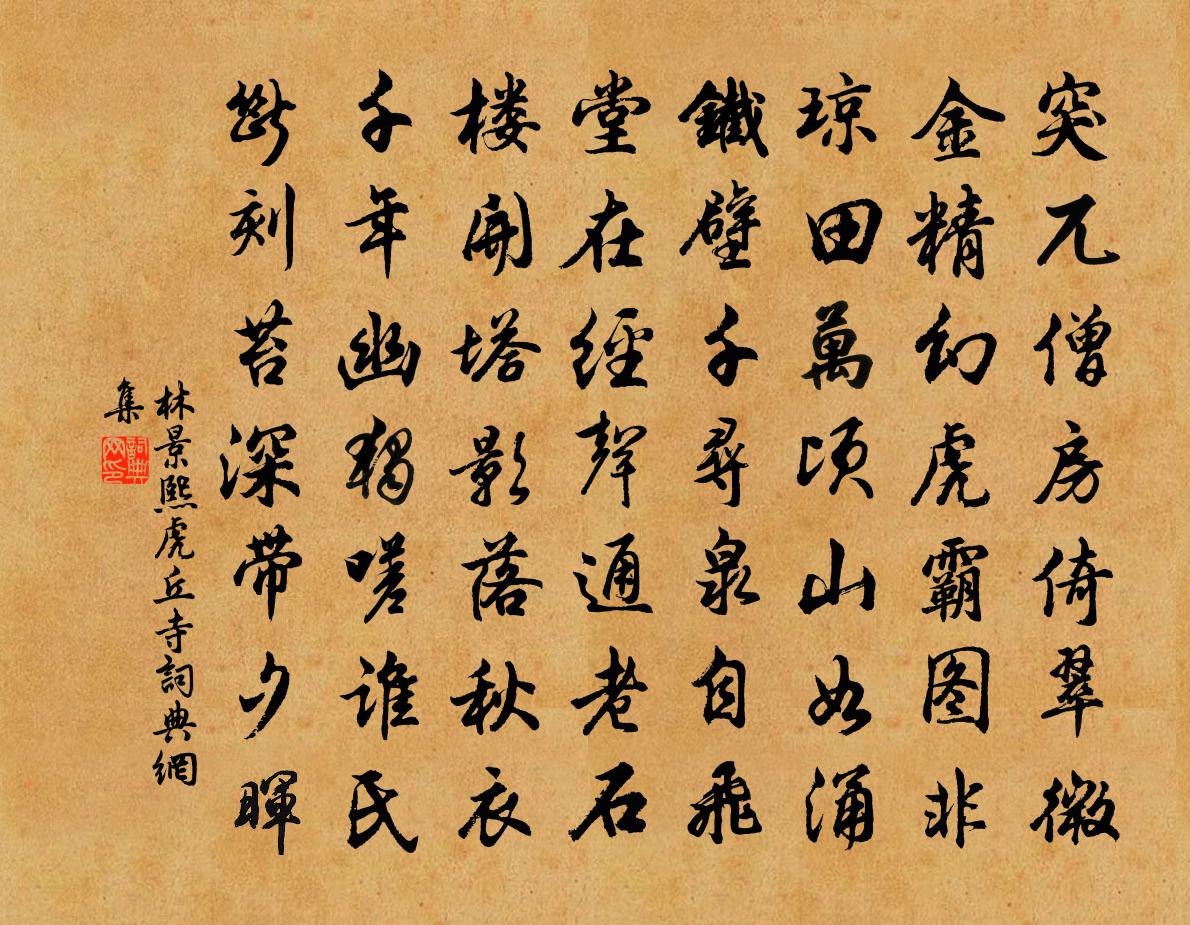 突兀僧房倚翠微
金精幻虎霸图非
琼田萬頃山如涌
鐵壁千尋泉自飛
堂在經聲通老石
楼開塔影落秋衣
千年幽獨嗟誰氏
斷刻苔深帶夕暉
林景熙虎丘寺詞典網
集
詞典
网印